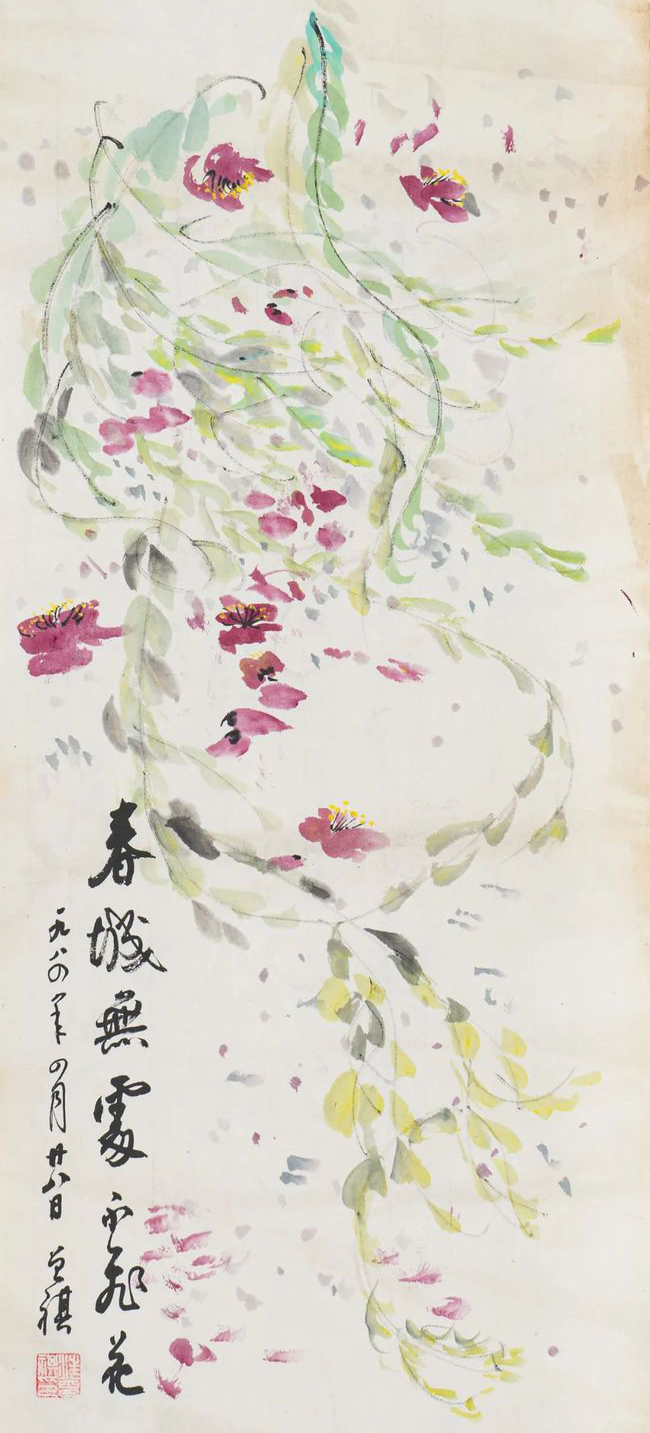 春城無處不飛花
一九八四年四月廿八日 曾祺